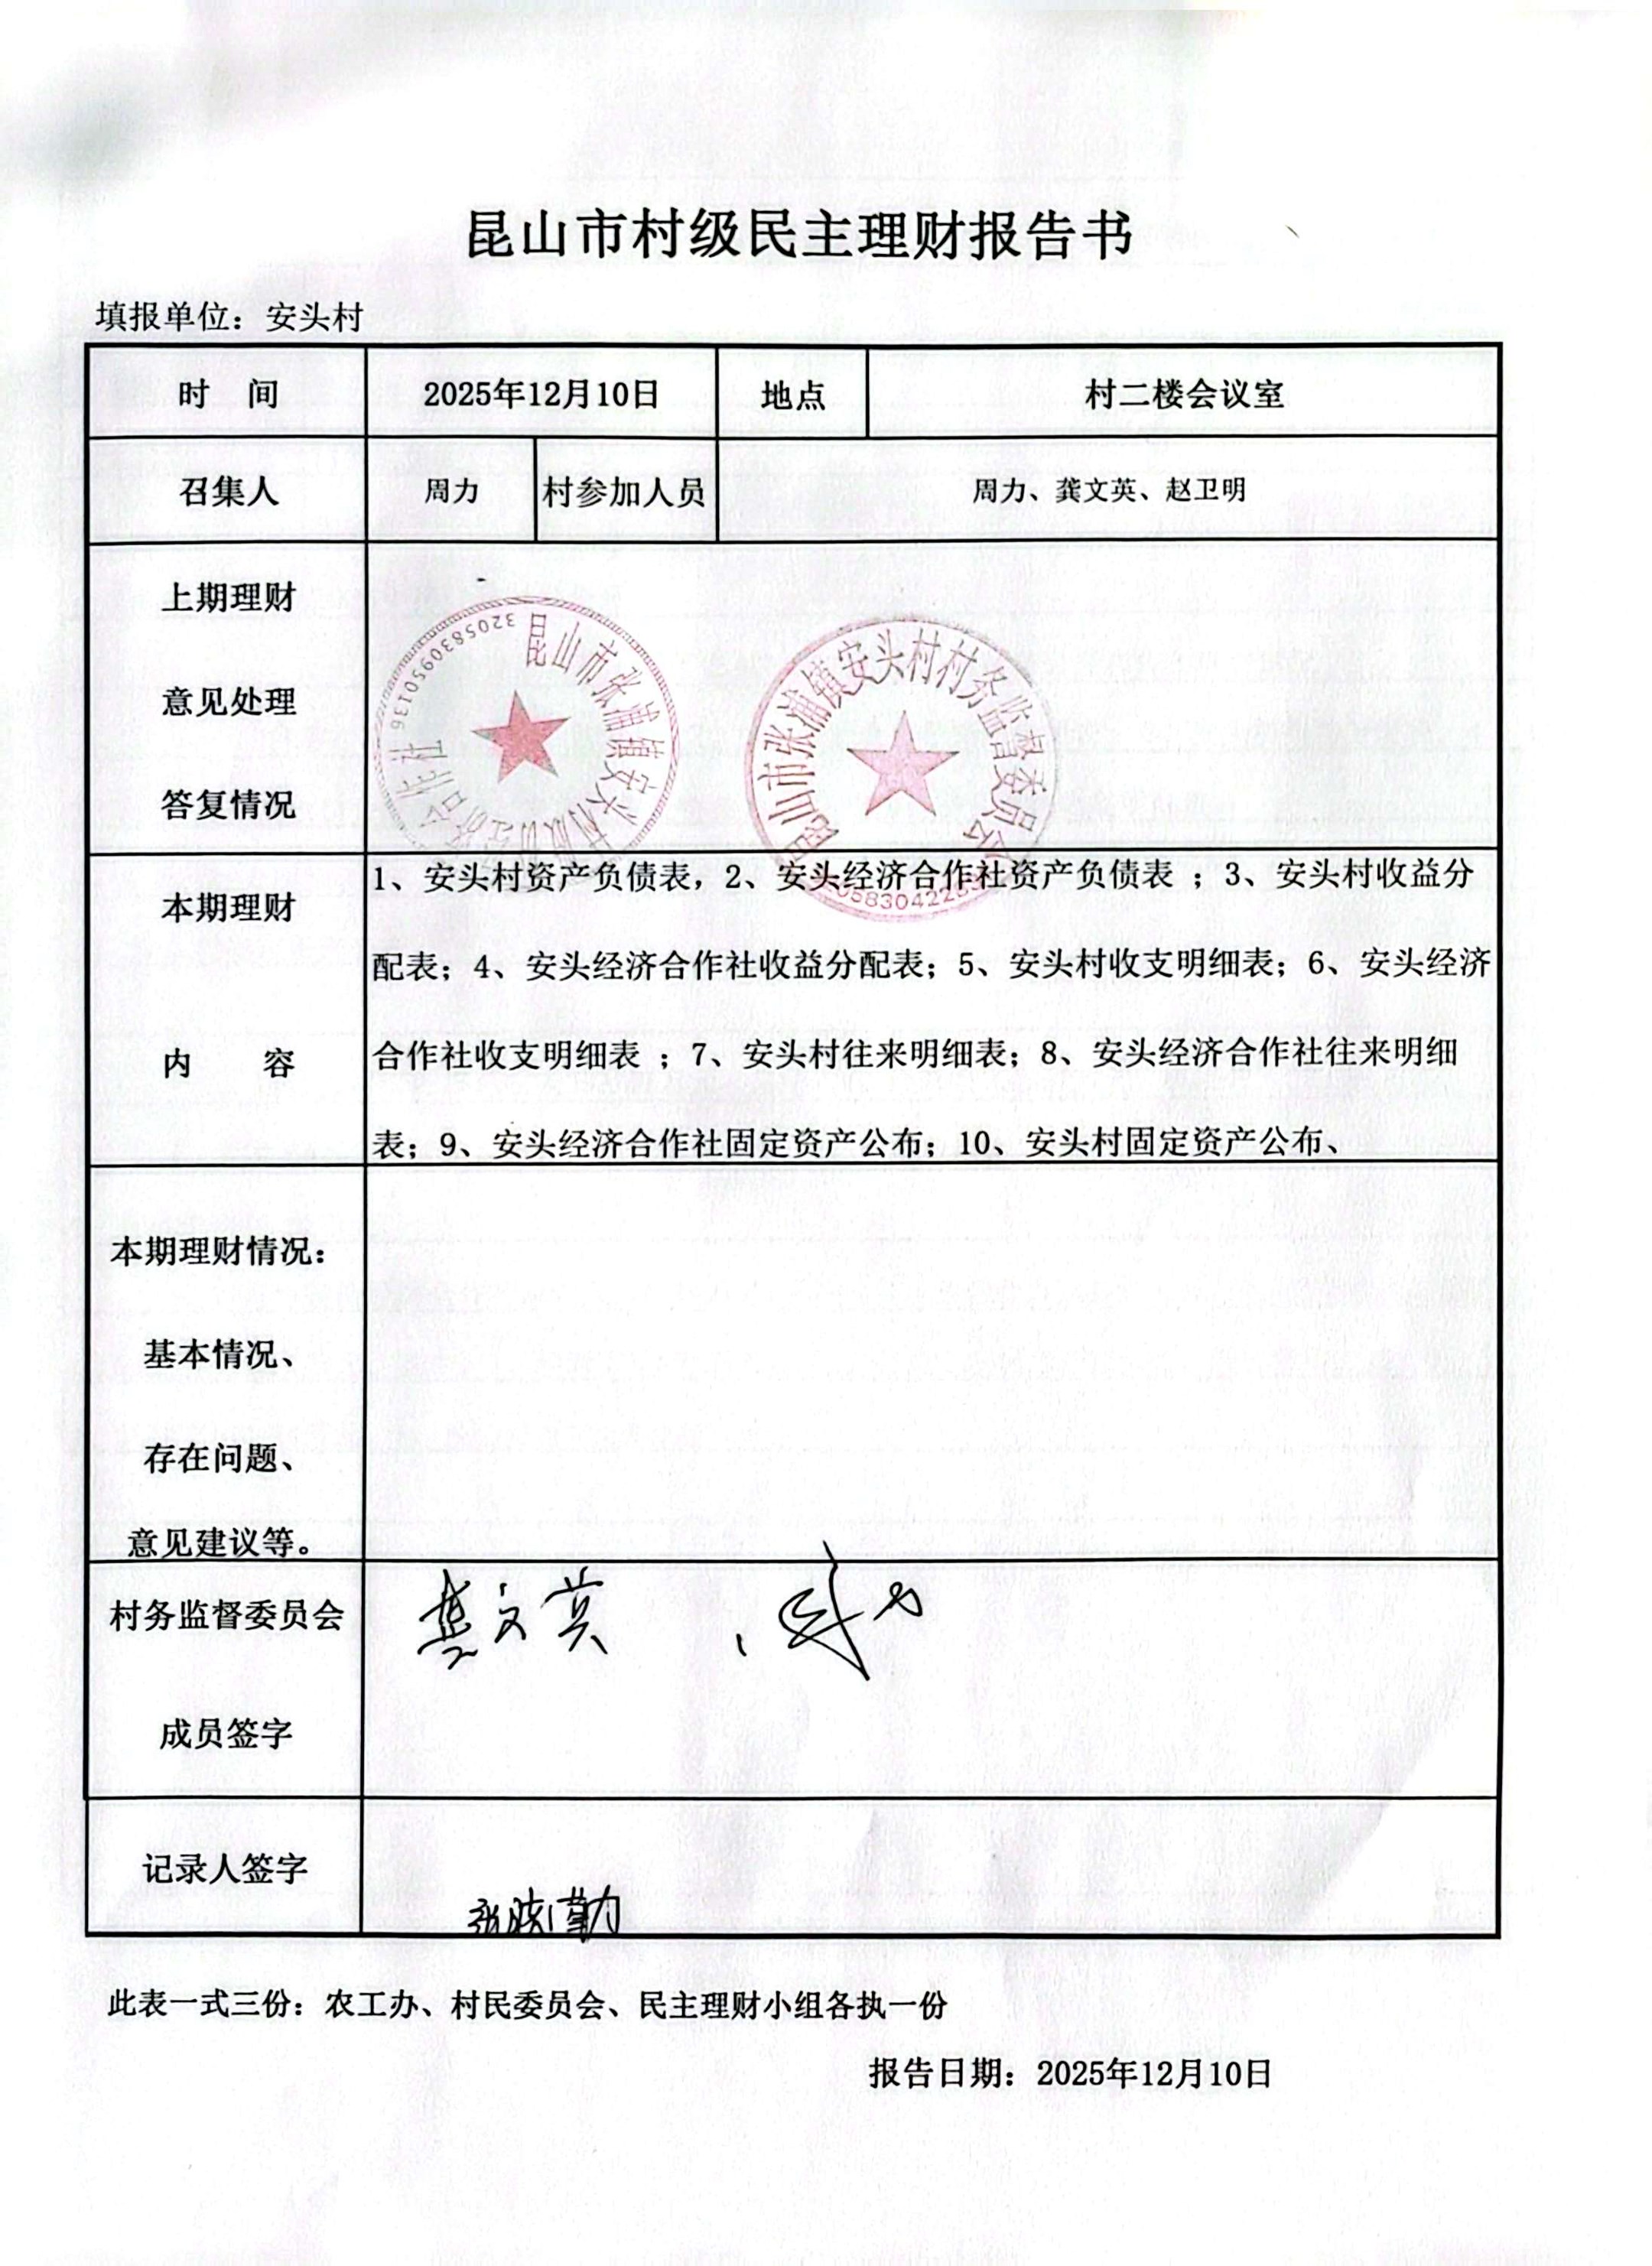 昆山市村级民主理财报告书
填报单位：安头村
时　间 2025年12月10日 地点 村二楼会议室
召集人 周力 村参加人员 周力、龚文英、赵卫明
上期理财
意见处理
答复情况
3205830950136
昆山市张浦镇安头村股份经济合作社
昆山市张浦镇安头村村务监督委员会
本期理财
内　　容
1、安头村资产负债表，2、安头经济合作社资产负债表 ；3、安头村收益分
配表；4、安头经济合作社收益分配表；5、安头村收支明细表；6、安头经济
合作社收支明细表 ；7、安头村往来明细表；8、安头经济合作社往来明细
表；9、安头经济合作社固定资产公布；10、安头村固定资产公布、
本期理财情况：
基本情况、
存在问题、
意见建议等。
村务监督委员会
成员签字
龚文英 、周力
记录人签字
张晓勤
此表一式三份：农工办、村民委员会、民主理财小组各执一份
报告日期：2025年12月10日